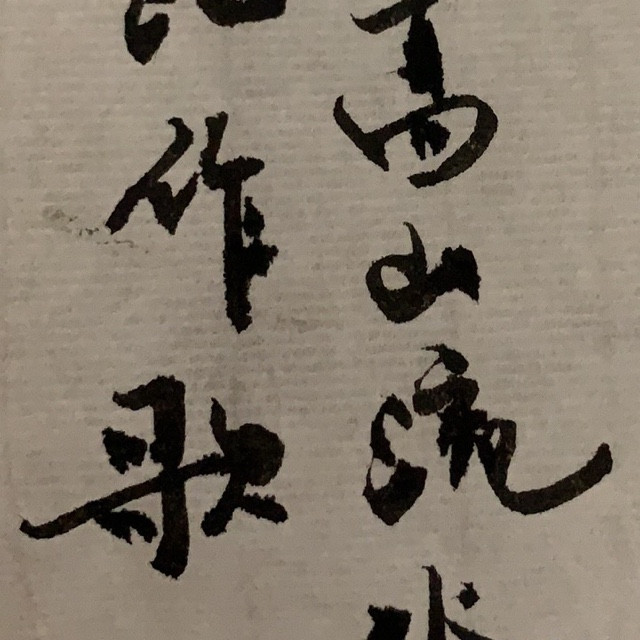 高山流
作歌